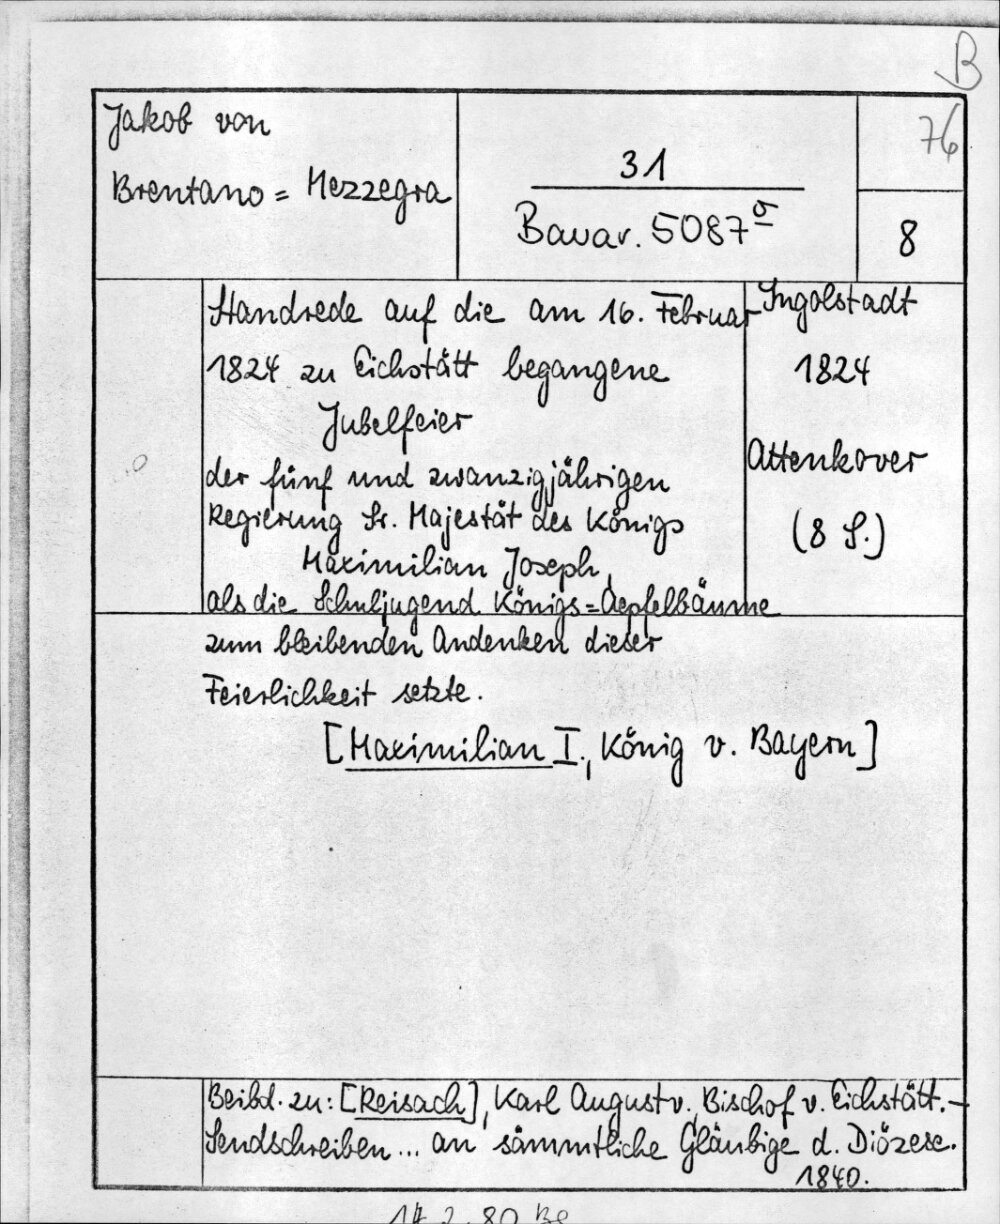 B
Jakob von
Brentano = Mezzegra
31
Bavar. 5087 a
76
8
Standrede auf die am 16. Februar
1824 zu Eichstätt begangene
Jubelfeier
der fünf und zwanzigjährigen
Regierung Sr. Majestät des Königs
Maximilian Joseph,
als die Schuljugend Königs=Aepfelbäume
zum bleibenden Andenken dieser
Feierlichkeit setzte.
[Maximilian I., König v. Bayern]
Ingolstadt
1824
Attenkover
(8 S.)
Beibd. zu: [Reisach], Karl August v., Bischof v. Eichstätt. –
Sendschreiben ... an sämmtliche Gläubige d. Diözese.
1840.